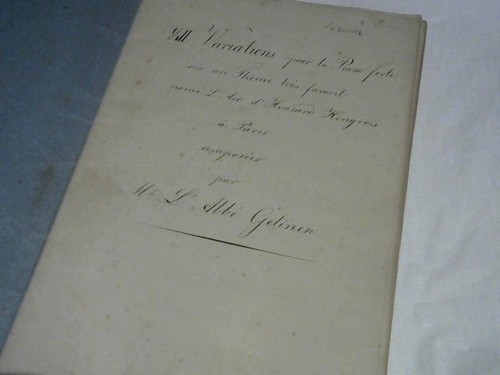 XII Variations pour le Piano forte
sur un Thema très favorit
nomé L'Air d'Housard Hongrois
à Paris
composées
par
Mr L'Abbé Gelinen